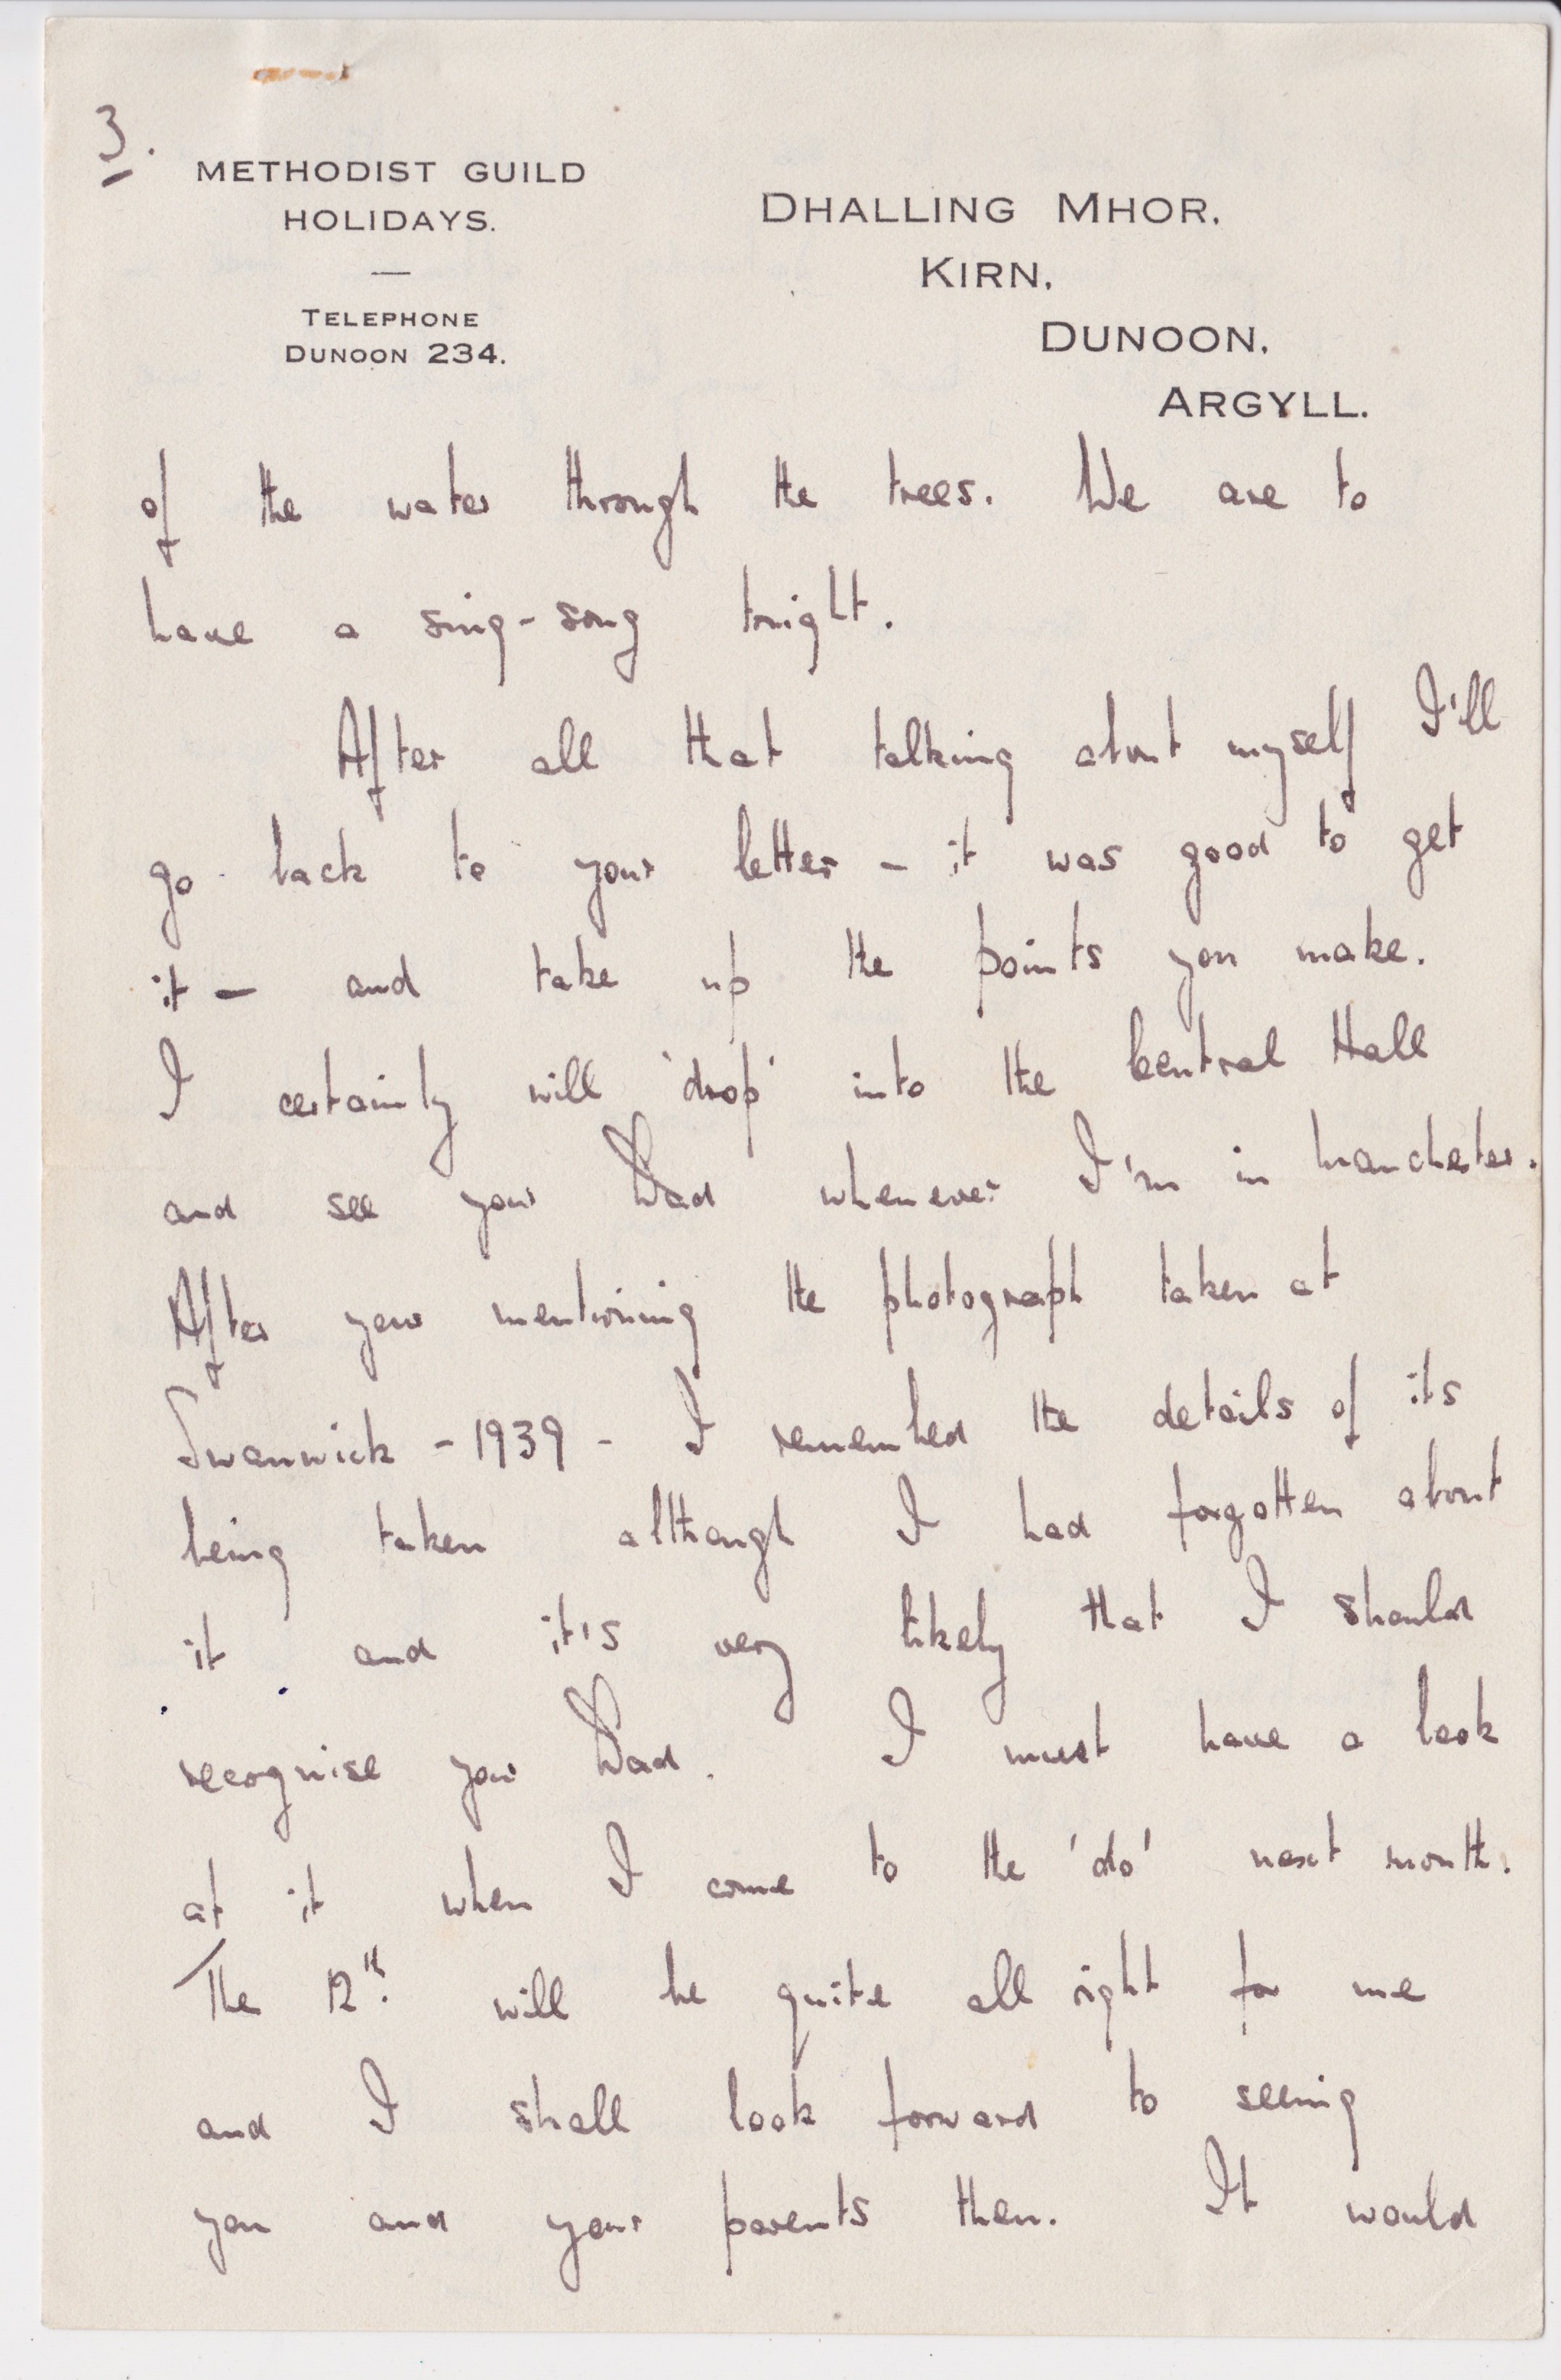 3.
METHODIST GUILD
HOLIDAYS.
—
TELEPHONE
DUNOON 234.
DHALLING MHOR,
KIRN,
DUNOON,
ARGYLL.
of the water through the trees. We are to
have a sing-song tonight.
After all that talking about myself I'll
go back to your letter – it was good to get
it – and take up the points you make.
I certainly will 'drop' into the Central Hall
and see your Dad whenever I'm in Manchester.
After your mentioning the photograph taken at
Swanwick – 1939 – I remembered the details of its
being taken although I had forgotten about
it and it's very likely that I should
recognise your Dad. I must have a look
at it when I come to the 'do' next month.
The 12th. will be quite all right for me
and I shall look forward to seeing
you and your parents then. It would